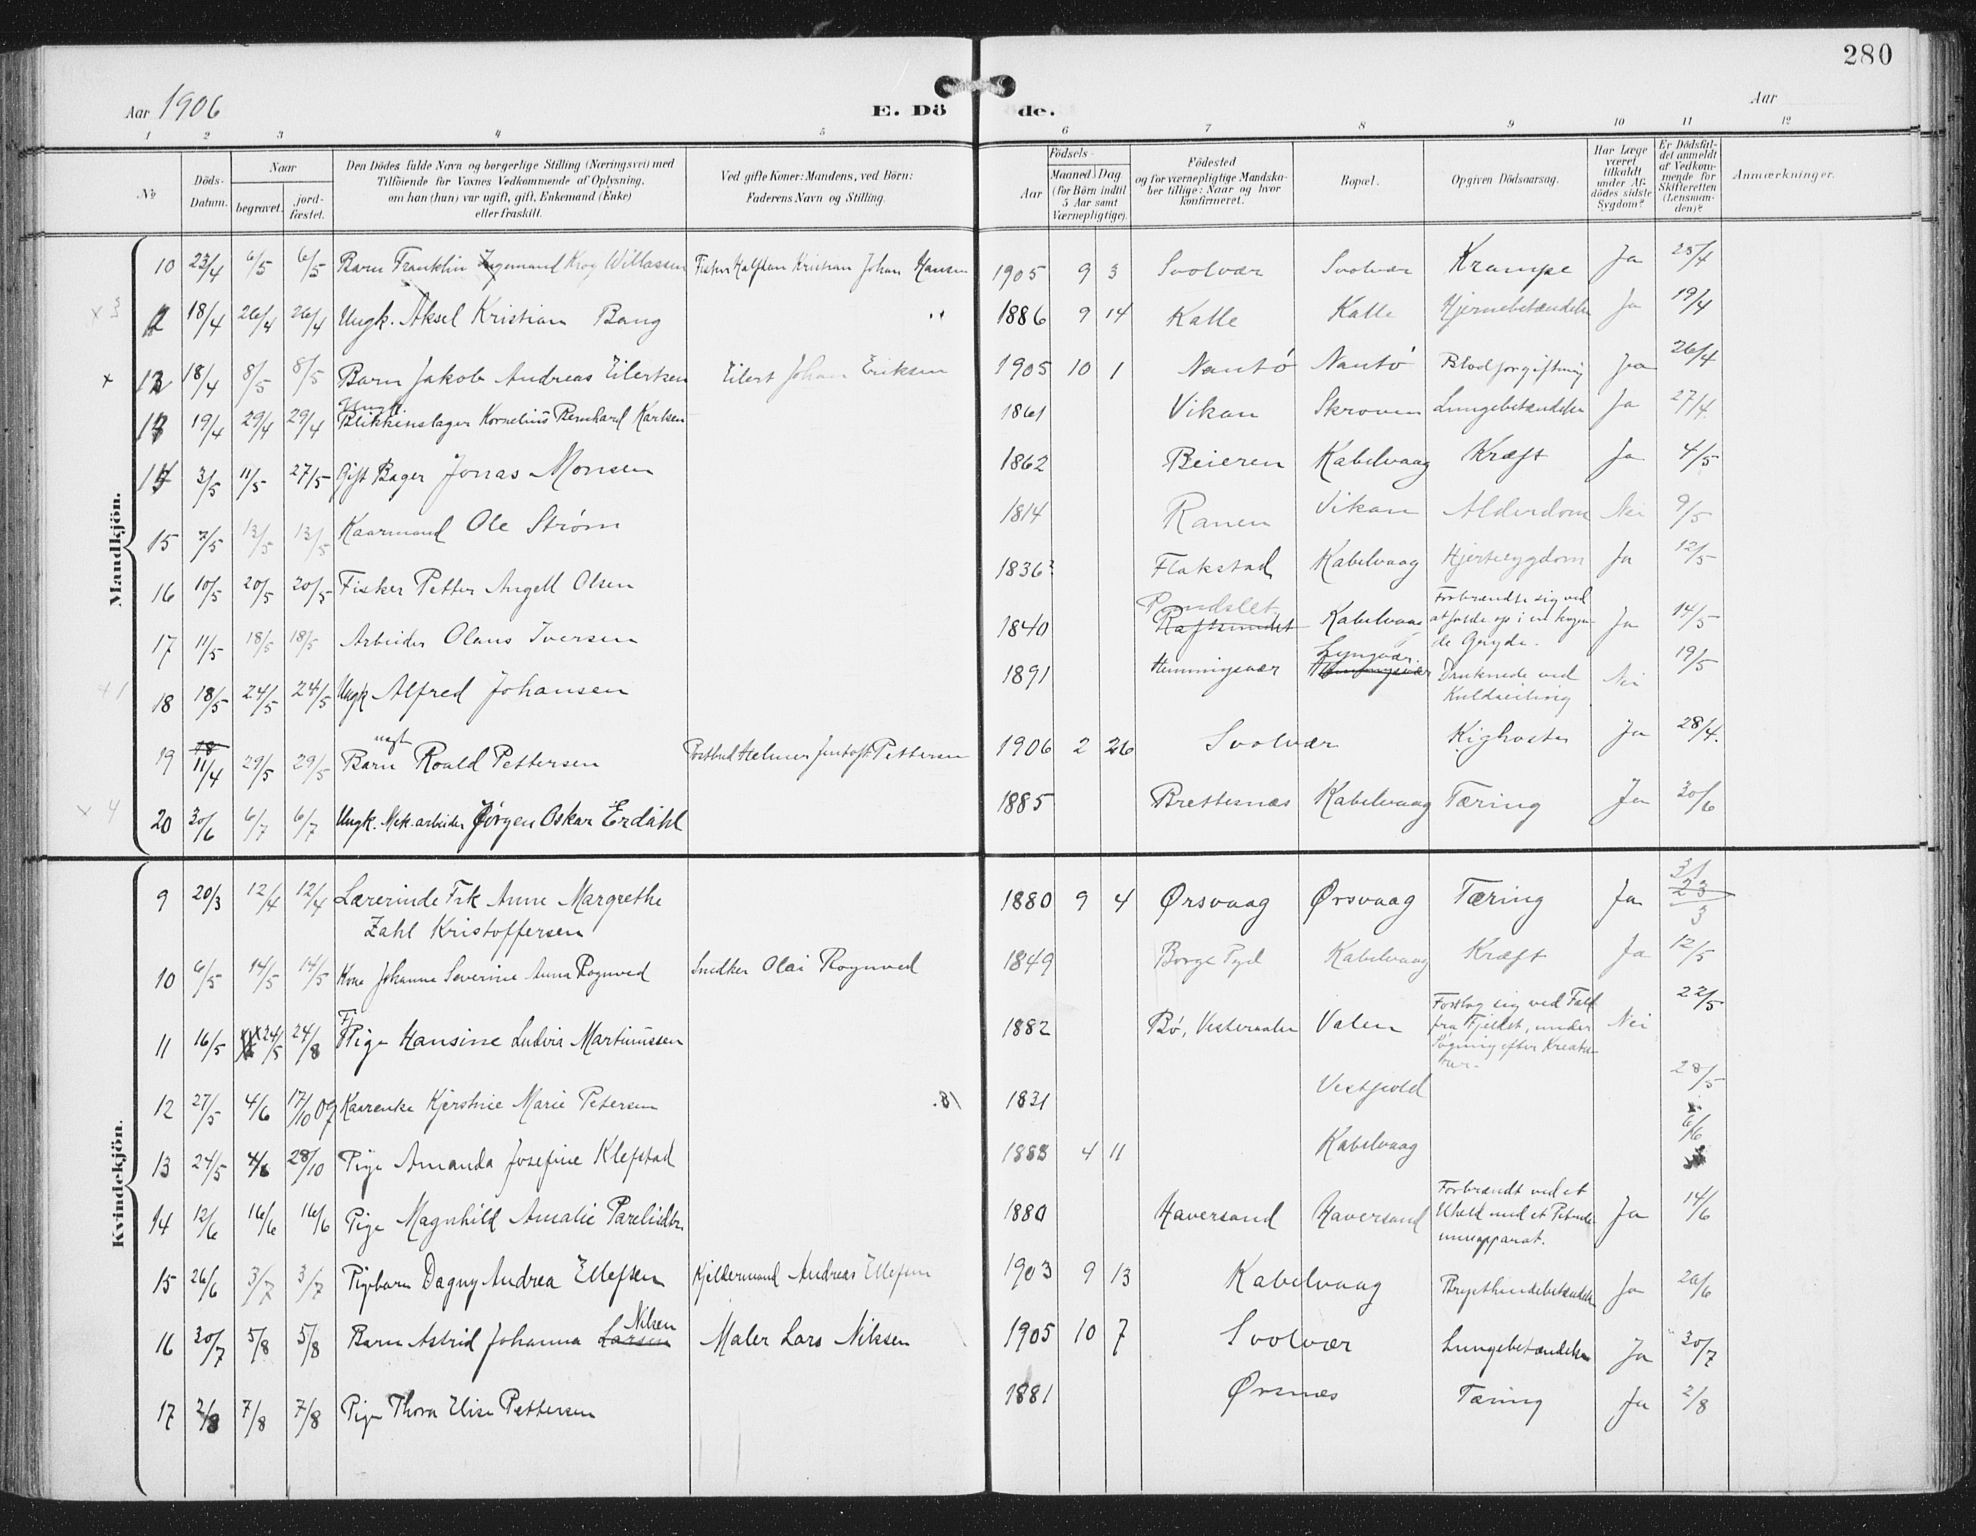 280
Aar 1906
E. Dö de.
Aar
1 2 3 4 5 6 7 8 9 10 11 12
No
Döds-Datum.
Naar
begravet.
jord-fæstet.
Den Dödes fulde Navn og borgerlige Stilling (Næringsvei) med
Tilföiende for Voxnes Vedkommende af Oplysning,
om han (hun) var ugift, gift, Enkemand (Enke)
eller fraskilt.
Ved gifte Koner: Mandens, ved Börn:
Faderens Navn og Stilling.
Födsels-
Aar
Maaned Dag
(for Börn indtil
5 Aar samt
Værnepligtige).
Födested
og for værnepligtige Mandska-
ber tillige: Naar og hvor
konfirmeret.
Bopæl.
Opgiven Dödsaarsag.
Har Læge
været
tilkaldt
under Af-
dödes sidste
Sygdom?
Er Dödsfal-
det anmeldt
af Vedkom-
mende for
Skifteretten
(Lensman-
den)?
Anmærkninger.
Mandkjön.
10 23/4 6/5 6/5 Barn Franklin Ingemand Krog Willassen Fisker Halfdan Kristian Johan Hansen 1905 9 3 Svolvær Svolvær Krampe Ja 25/4
x 3 18/4 26/4 26/4 Ungk. Aksel Kristian Bang " 1886 9 14 Kalle Kalle Hjernebetændelse Ja 19/4
x 12 18/4 8/5 8/5 Barn Jakob Andreas Eilertsen Eilert Johan Eriksen 1905 10 1 Nautö Nautö Blodforgiftning Ja 26/4
Ungk.
13 19/4 29/4 29/4 Blikkenslager Kornelius Bernhard Karlsen 1861 Vikan Skroven Lungebetændelse Ja 27/4
14 3/5 11/5 27/5 Gift Bager Jonas Monsen 1862 Beieren Kabelvaag Kræft Ja 4/5
15 7/5 13/5 13/5 Kaarmand Ole Strøm 1814 Ranen Vikan Alderdom Nei 9/5
16 10/5 20/5 20/5 Fisker Petter Angell Olsen 1836? Flakstad Kabelvaag Hjertesygdom Ja 12/5
17 11/5 18/5 18/5 Arbeider Olaus Iversen 1840 Pundslet Raftsundet Kabelvaag Forbrændte sig ved
at falde op i en kogen-
de Gryde. Ja 14/5
18 18/5 24/5 24/5 Ungk Alfred Johansen 1891 Henningsvær Lyngvær Henningsvær Druknede ved
Kuldseiling Nei 19/5
19 18 11/4 29/5 29/5 Barn uægt Roald Pettersen Postbud Helmer Gustoft Pettersen 1906 2 26 Svolvær Kighoste Ja 28/4.
x 4 20 30/6 6/7 6/7 Ungk. Mek. arbeider Jörgen Oskar Erdahl 1885 Brettesnæs Kabelvaag Tæring Ja 30/6
Kvindekjön.
9 20/3 12/4 12/4 Lærerinde Frk Anne Margrethe
Zahl Kristoffersen 1880 9 4 Ørsvaag Ørsvaag Tæring Ja 31 23 3
10 6/5 14/5 14/5 Kone Johanna Severine Anna Rognved Snedker Olai Rognved 1849 Borge Kabelvaag Kræft Ja 12/5
11 16/5 24/5 24/8 Pige Hansine Ludvia Martinussen 1882 Bø, Vesteraalen Valen Forslog sig ved Fald
fra Fjeldet, under
Søgning efter Kreatu-
rer. Nei 22/5
12 27/5 4/6 17/10 07 Kaarenke Kjerstine Marie Petersen 1831 Vestfjord 28/5
13 24/5 4/6 28/10 Pige Amanda Josefine Klefstad 1883 4 11 Kabelvaag 6/6
14 12/6 16/6 16/6 Pige Magnhild Amalie Pareliussen 1880 Haversand Haversand Forbrændt ved et
Uheld med et Petrole-
umsapparat. Ja 14/6
15 26/6 3/7 3/7 Pigebarn Dagny Andrea Ellefsen Kjeldermand Andreas Ellefsen 1903 9 13 Kabelvaag Brysthindebetændelse Ja 26/6
16 30/7 5/8 5/8 Barn Astrid Johanna Larsen Nilsen Maler Lars Nilsen 1905 10 7 Svolvær Lungebetændelse Ja 30/7
17 2/8 7/8 7/8 Pige Thora Elise Pettersen 1881 Ørsnæs Tæring Ja 2/8